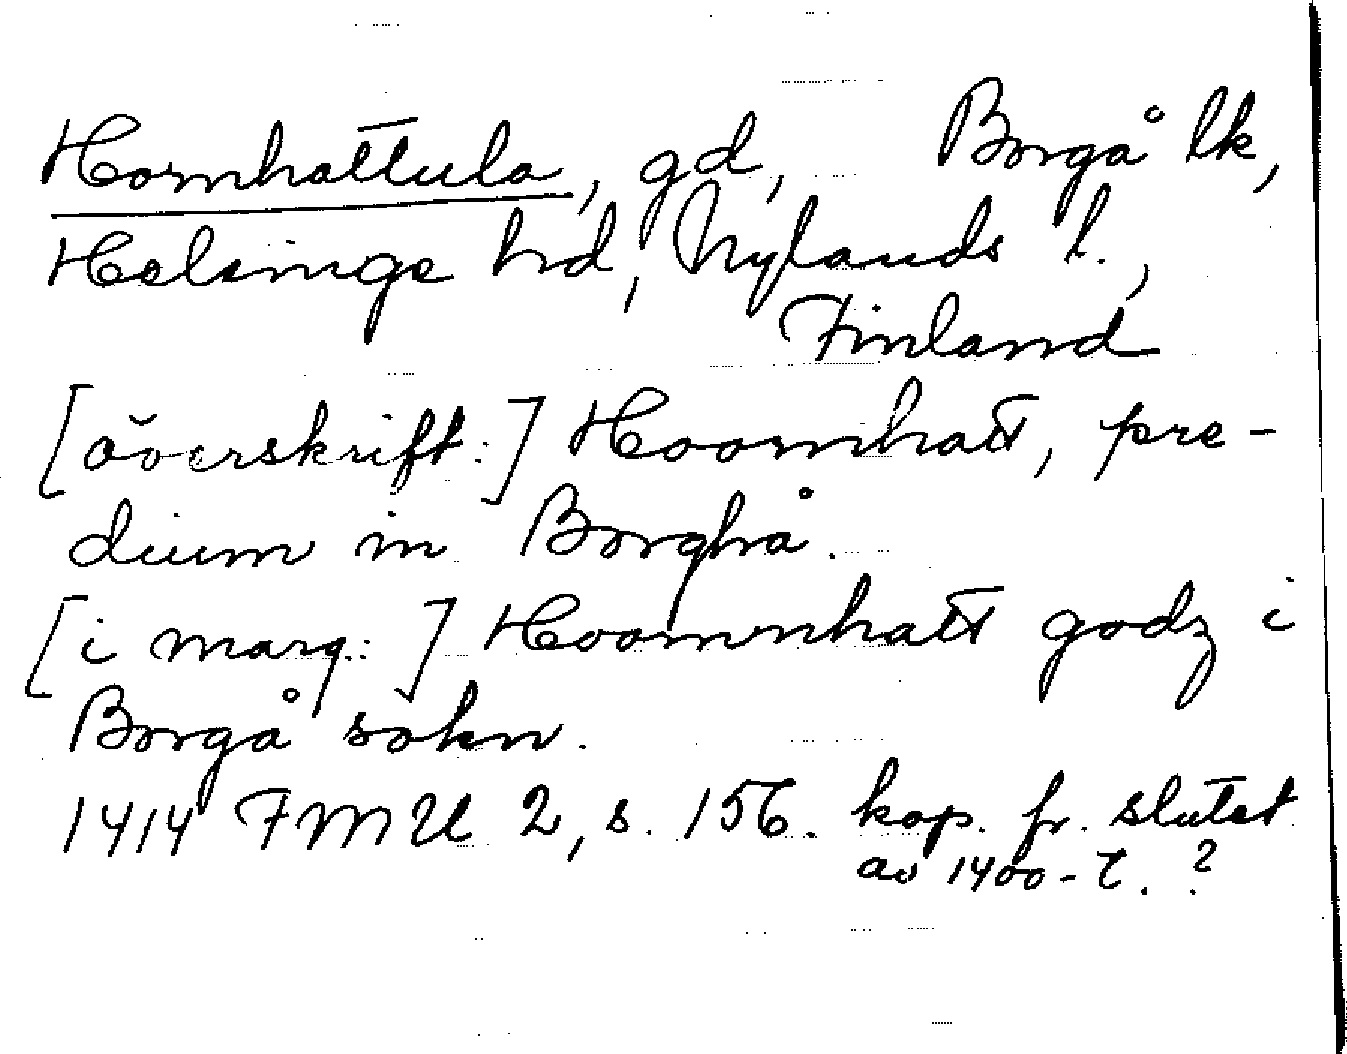 Hornhattula, gd, Borgå lk,
Helsinge hrd, Nylands l.,
Finland
[överskrift:] Hoornhatt, pre-
dium in Borghå.
[i marg.:] Hoornnhatt godz i
Borgå sokn.
1414 FMU 2, s. 156. kop. fr. slutet
av 1400-t. ?